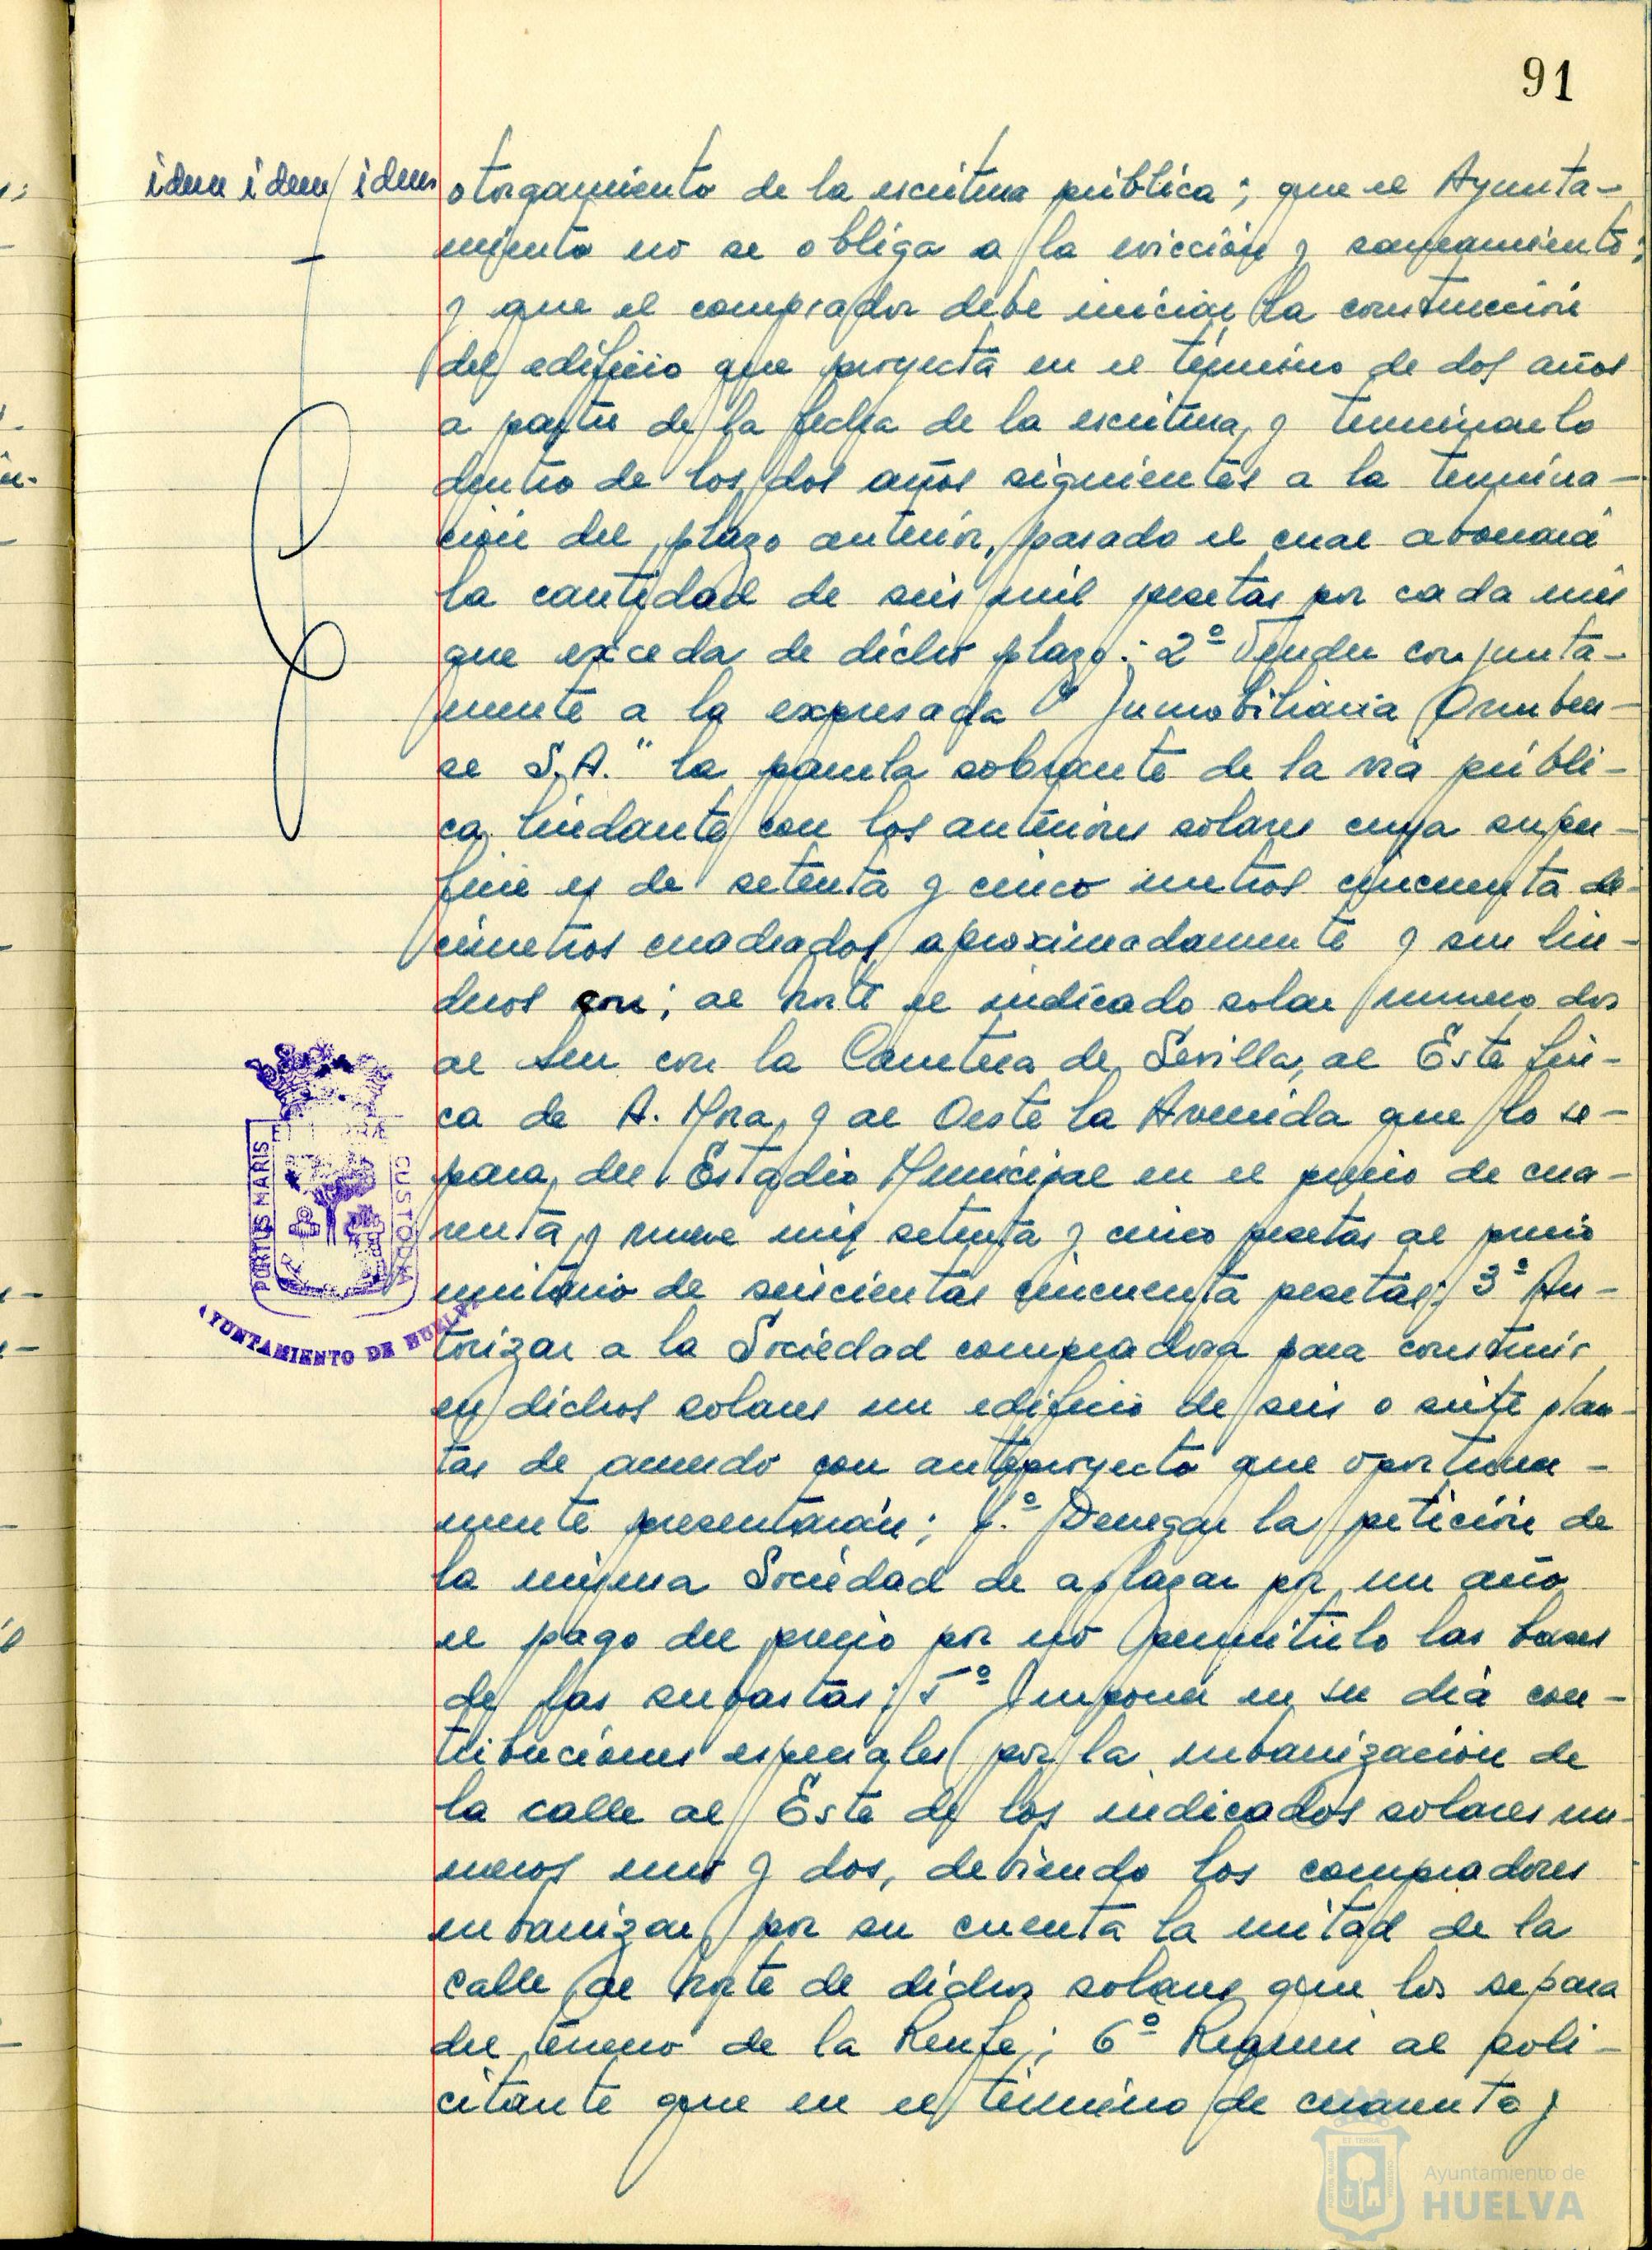 91
idem idem idem
otorgamiento de la escritura pública; que el Ayunta-
miento no se obliga a la evicción y saneamiento;
y que el comprador debe iniciar la construcción
del edificio que proyecta en el término de dos años
a partir de la fecha de la escritura, y terminarlo
dentro de los dos años siguientes a la termina-
ción del plazo anterior, pasado el cual abonará
la cantidad de seis mil pesetas por cada mes
que exceda de dicho plazo; 2º Vender conjunta-
mente a la expresada "Inmobiliaria Onuben-
se S.A." la parcela sobrante de la vía públi-
ca lindante con los anteriores solares cuya super-
ficie es de setenta y cinco metros cincuenta de-
címetros cuadrados aproximadamente y sus lin-
deros son; al norte el indicado solar numero dos
al sur con la Carretera de Sevilla, al Este fin-
ca de A. Mora, y al Oeste la Avenida que lo se-
para del Estadio Municipal en el precio de cua-
renta y nueve mil setenta y cinco pesetas al precio
unitario de seiscientas cincuenta pesetas; 3º Au-
torizar a la Sociedad compradora para construir
en dichos solares un edificio de seis o siete plan-
tas de acuerdo con anteproyecto que oportuna-
mente presentarán; 4.º Denegar la petición de
la misma Sociedad de aplazar por un año
el pago del precio por no permitirlo las bases
de las subastas; 5º Imponer en su día con-
tribuciones especiales por la urbanización de
la calle al Este de los indicados solares nu-
meros uno y dos, debiendo los compradores
urbanizar por su cuenta la mitad de la
calle al norte de dichos solares que los separa
del terreno de la Renfe; 6º Requerir al soli-
citante que en el término de cuarenta y
PORTUS MARIS
ET TERRÆ
CUSTODIA
AYUNTAMIENTO DE HUELVA
Ayuntamiento de
HUELVA